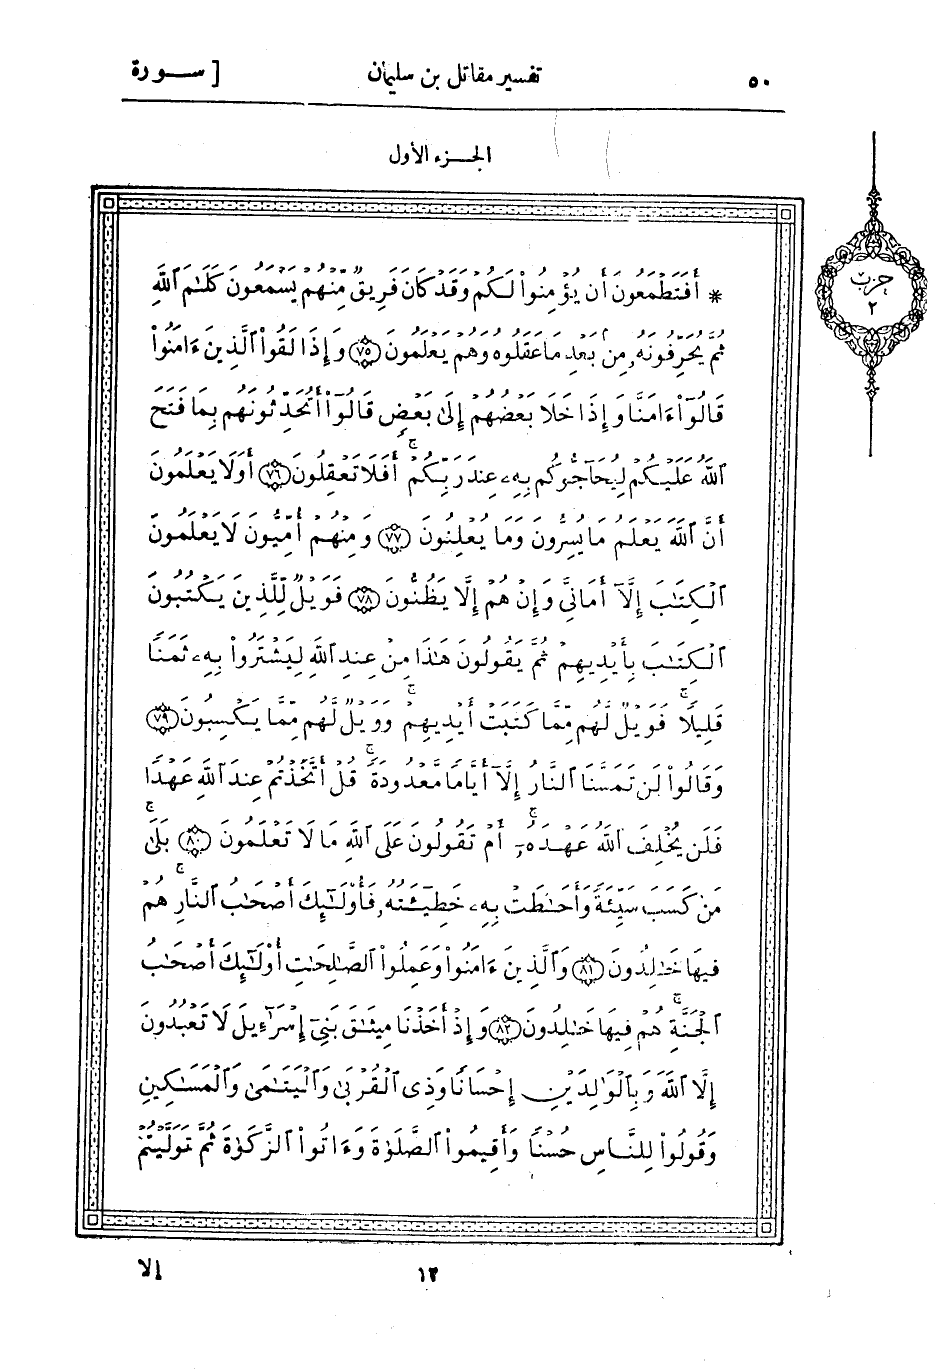 ٥٠ تفسير مقاتل بن سليمان [ ســـورة
الجـــزء الأول
حزب
٢
* أَفَتَطْمَعُونَ أَن يُؤْمِنُوا۟ لَكُمْ وَقَدْ كَانَ فَرِيقٌ مِّنْهُمْ يَسْمَعُونَ كَلَٰمَ ٱللَّهِ
ثُمَّ يُحَرِّفُونَهُۥ مِنۢ بَعْدِ مَا عَقَلُوهُ وَهُمْ يَعْلَمُونَ ٧٥ وَإِذَا لَقُوا۟ ٱلَّذِينَ ءَامَنُوا۟
قَالُوٓا۟ ءَامَنَّا وَإِذَا خَلَا بَعْضُهُمْ إِلَىٰ بَعْضٍ قَالُوٓا۟ أَتُحَدِّثُونَهُم بِمَا فَتَحَ
ٱللَّهُ عَلَيْكُمْ لِيُحَآجُّوكُم بِهِۦ عِندَ رَبِّكُمْ ۚ أَفَلَا تَعْقِلُونَ ٧٦ أَوَلَا يَعْلَمُونَ
أَنَّ ٱللَّهَ يَعْلَمُ مَا يُسِرُّونَ وَمَا يُعْلِنُونَ ٧٧ وَمِنْهُمْ أُمِّيُّونَ لَا يَعْلَمُونَ
ٱلْكِتَٰبَ إِلَّآ أَمَانِىَّ وَإِنْ هُمْ إِلَّا يَظُنُّونَ ٧٨ فَوَيْلٌ لِّلَّذِينَ يَكْتُبُونَ
ٱلْكِتَٰبَ بِأَيْدِيهِمْ ثُمَّ يَقُولُونَ هَٰذَا مِنْ عِندِ ٱللَّهِ لِيَشْتَرُوا۟ بِهِۦ ثَمَنًا
قَلِيلًا ۖ فَوَيْلٌ لَّهُم مِّمَّا كَتَبَتْ أَيْدِيهِمْ ۖ وَوَيْلٌ لَّهُم مِّمَّا يَكْسِبُونَ ٧٩
وَقَالُوا۟ لَن تَمَسَّنَا ٱلنَّارُ إِلَّآ أَيَّامًا مَّعْدُودَةً ۚ قُلْ أَتَّخَذْتُمْ عِندَ ٱللَّهِ عَهْدًا
فَلَن يُخْلِفَ ٱللَّهُ عَهْدَهُۥٓ ۖ أَمْ تَقُولُونَ عَلَى ٱللَّهِ مَا لَا تَعْلَمُونَ ٨٠ بَلَىٰ ۚ
مَن كَسَبَ سَيِّئَةً وَأَحَٰطَتْ بِهِۦ خَطِيٓـَٔتُهُۥ فَأُو۟لَٰٓئِكَ أَصْحَٰبُ ٱلنَّارِ ۖ هُمْ
فِيهَا خَٰلِدُونَ ٨١ وَٱلَّذِينَ ءَامَنُوا۟ وَعَمِلُوا۟ ٱلصَّٰلِحَٰتِ أُو۟لَٰٓئِكَ أَصْحَٰبُ
ٱلْجَنَّةِ ۖ هُمْ فِيهَا خَٰلِدُونَ ٨٢ وَإِذْ أَخَذْنَا مِيثَٰقَ بَنِىٓ إِسْرَٰٓءِيلَ لَا تَعْبُدُونَ
إِلَّا ٱللَّهَ وَبِٱلْوَٰلِدَيْنِ إِحْسَانًا وَذِى ٱلْقُرْبَىٰ وَٱلْيَتَٰمَىٰ وَٱلْمَسَٰكِينِ
وَقُولُوا۟ لِلنَّاسِ حُسْنًا وَأَقِيمُوا۟ ٱلصَّلَوٰةَ وَءَاتُوا۟ ٱلزَّكَوٰةَ ثُمَّ تَوَلَّيْتُمْ
١٢ إلا